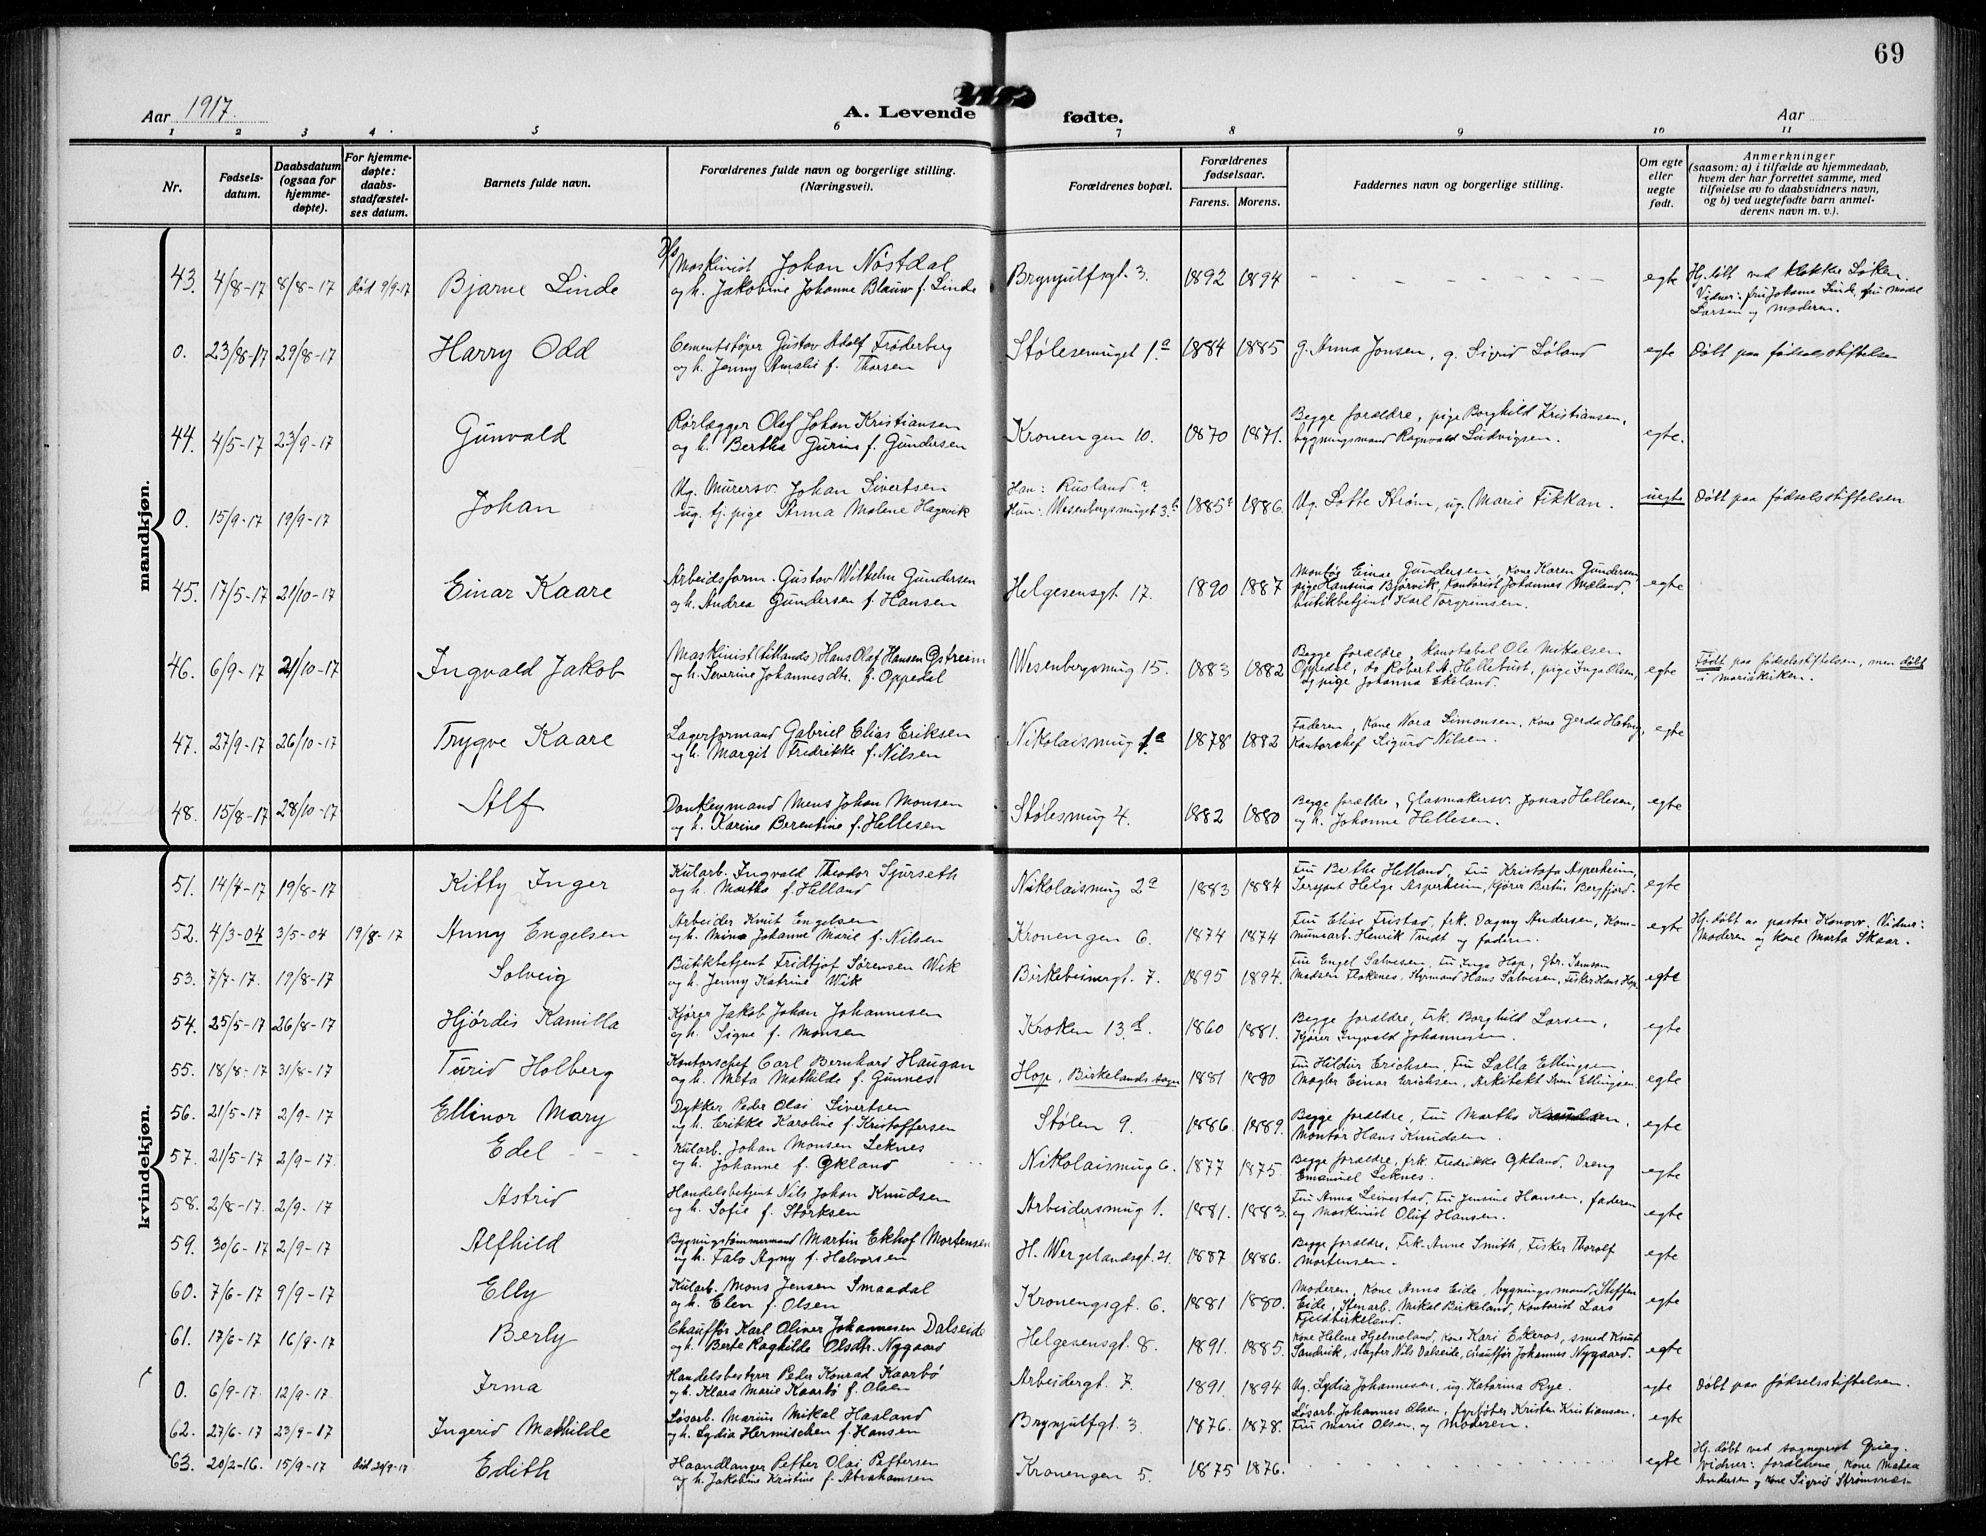 69
Aar 1917.
A. Levende fødte.
Aar
1 2 3 4 5 6 7 8 9 10 11
Nr.
Fødsels-
datum.
Daabsdatum
(ogsaa for
hjemme-
døpte).
For hjemme-
døpte:
daabs-
stadfæstel-
ses datum.
Barnets fulde navn.
Forældrenes fulde navn og borgerlige stilling.
(Næringsvei).
Forældrenes bopæl.
Forældrenes
fødselsaar.
Farens. Morens.
Faddernes navn og borgerlige stilling.
Om egte
eller
uegte
født.
Anmerkninger
(saasom: a) i tilfælde av hjemmedaab,
hvem der har forrettet samme, med
tilføielse av to daabsvidners navn,
og b) ved uegtefødte barn anmel-
derens navn m. v.).
mandkjøn.
43. 4/8-17 8/8-17 død 9/9-17 Bjarne Linde
Maskinist Johan Nøstdal
og h. Jakobine Johanne Blauw f. Linde
Brynjulfsgt. 3. 1892 1894 egte
Hj. døbt ved klokker Løken.
Vidner: fru Johanne Linde, fru Model
Larsen og moderen.
0. 23/8-17 29/8-17 Harry Odd
Cementstøper Gustav Adolf Frøderberg
og h. Jenny Amalie f. Thorsen
Stølesmuget 1a 1884 1885 g. Anna Jonsen, g. Sigrid Løland egte Døbt paa fødselsstiftelsen
44. 4/5-17 23/9-17 Gunvald
Rørlægger Olaf Johan Kristiansen
og h. Bertha Gurine f. Gundersen
Kronengen 10. 1870 1871.
Begge forældre, pige Borghild Kristiansen,
bygningsmand Ragnvald Ludvigsen.
egte.
0. 15/9-17 19/9-17 Johan
Ug. Murersv. Johan Sivertsen
ug. tj. pige Anna Malene Hagevik
Han: Rusland?
Hun: Wesenbergsmuget 3.b
1885? 1886. Ug. Lotte Strøm, ug. Marie Fikkan. uegte Døbt paa fødselsstiftelsen
45. 17/5-17 21/10-17 Einar Kaare
Arbeidsform. Gustav Wilhelm Gundersen
og h. Andrea Gundersen f. Hansen
Helgesensgt 17. 1890 1887
Montør Einar Gundersen, kone Karen Gundersen
pige Hansine Bjørvik, kontorist Johannes Mæland,
butikbetjent Karl Torgrimsen.
egte
46. 6/9-17 21/10-17 Ingvald Jakob
Maskinist (tillands) Hans Olaf Hansen Østreim
og h. Severine Johannesdtr. f. Oppedal
Wesenbergsmug 15. 1883 1882
Begge forældre, konstabel Ole Mathias
Oppedal, do Robert A. Hellebust, pige Inga Olsen,
og pige Johanna Ekeland.
egte
Født paa fødselsstiftelsen, men døbt
i mariakirken.
47. 27/9-17 26/10-17 Trygve Kaare
Lagerformand Gabriel Elias Eriksen
og h. Margit Fredrikke f. Nilsen
Nikolaismug 1a 1878 1882
Faderen, kone Nora Simonsen, kone Gerda Hatvig,
kontorchef Sigurd Nilsen.
egte
48. 15/8-17 28/10-17 Alf
Donkeymand Mons Johan Monsen
og h. Karine Berentine f. Hellesen
Stølesmug 4. 1882 1880
Begge forældre, Glasmakersv. Jonas Hellesen,
og h. Johanne Hellesen.
egte
kvindekjøn.
51. 14/4-17 19/8-17 Kitty Inger
Kularb. Ingvald Theodor Sjurseth
og h. Martha f. Helland
Nikolaismug 2a 1883 1884
Fru Berthe Helland, Fru Kristofa Asperheim,
Sersjant Helge Asperheim, kjører Bertin Bergfjord.
egte
52. 4/3-04 3/5-04 19/8-17 Anny Engelsen
Arbeider Knut Engelsen
og h. Mina Johanne Marie f. Nilsen
Kronengen 6. 1874 1874
Fru Elise Fristad, frk. Dagny Andersen, Kom-
munearb. Henrik Tvedt og faderen.
egte
Hj. døbt av pastor Konow. Vidner:
Moderen og kone Marta Skaar.
53. 7/7-17. 19/8-17 Solveig
Butikbetjent Fridtjof Sørensen Wik
og h. Jenny Katrine Wik
Birkebeinergt. 7. 1895 1894.
Fru Engel Salvesen, Fru Inga Hop, Gbr. Samson
Madsen Flokenes, Styrmand Hans Salvesen, Fisker Hans Hop
egte
54. 25/5-17 26/8-17 Hjørdis Kamilla
Kjører Jakob Johan Johannesen
og h. Signe f. Monsen
Kroken 13d. 1860 1881.
Begge forældre, Frk. Borghild Larsen,
Kjører Ingvald Johannesen
egte
55. 18/8-17 31/8-17 Turid Holberg
Kontorschef Carl Bernhard Haugan
og h. Meta Mathilde f. Gunnes
Hop, Birkelands sogn 1881 1880
Fru Hildur Erichsen, Fru Lalla Ellingsen,
Mægler Einar Erichsen, Arkitekt Sven Ellingsen
egte
56. 21/5-17 2/9-17 Ellinor Mary
Dykker Peder Olai Sivertsen
og h. Erikke Karoline f. Kristoffersen
Stølen 9. 1886. 1889.
Begge forældre, Fru Martha Knudsen,
Montør Hans Knudsen.
egte
57. 21/5-17 2/9-17. Edel
Kularb. Johan Monsen Leknes
og h. Johanne f. Økland
Nikolaismug 6. 1877 1875.
Begge forældre, frk. Fredrikke Økland, Dreng
Emanuel Leknes.
egte
58. 2/8-17 2/9-17 Astrid
Handelsbetjent Nils Johan Knudsen
og h. Sofie f. Størksen
Arbeidersmug 1. 1881. 1883.
Fru Anna Leivestad, Fru Jensine Hansen, faderen
og maskinist Oluf Hansen.
egte
59. 30/6-17 2/9-17 Alfhild
Bygningstømmermand Martin Ekhof Mortensen
og h. Falo Agny f. Halvorsen
H. Wergelandsgt. 21. 1887 1886.
Begge forældre, Frk. Anne Smith, Fisker Thorolf
Mortensen.
egte
60. 7/6-17 9/9-17 Elly
Kularb. Mons Jensen Smaadal
og h. Elen f. Olsen
Kronengsgt. 6. 1881 1880.
Moderen, kone Anna Eide, bygningsmand Steffen
Eide, Stenarb. Mikal Birkeland, Kontorist Lars
Fjeldbirkeland.
egte
61. 17/6-17 16/9-17 Berly
Chauffør Karl Oliver Johannesen Dalseide
og h. Berte Raghilde Olsdtr. Nygaard
Helgesensgt. 8. 1891. 1885.
Kone Helene Hjelmeland, kone Kari Ekeros, smed Knut
Sandvik, slagter Nils Dalseide, chauffør Johannes Nygaard.
egte
0. 6/9-17. 12/9-17. Irma
Handelsbestyrer Peder Konrad Kaarbø
og h. Klara Marie Kaarbø f. Olsen
Arbeidergt. 7. 1891. 1894 Ug. Lydia Johannesen, ug. Katarina Rye. egte Døbt paa fødselsstiftelsen.
62. 27/6-17 23/9-17 Ingerid Mathilde
Løsarb. Marius Mikal Haaland
og h. Lydia Hermischen f. Hansen
Brynjulfgt. 3 1876. 1878.
Løsarb. Johannes Olsen, fyrbøter Kristen Kristiansen,
Fru Marie Olsen, og moderen.
egte
63. 20/2-16. 15/9-17 død 24/9-17 Edith
Haandlanger Petter Olai Pettersen
og h. Jakobine Kristine f. Abrahamsen
Kronengen 5. 1875 1876. egte
Hj. døbt ved sogneprest Grieg.
Vidner: forældrene, kone Matea
Andersen og kone Sigrid Strømsnes.